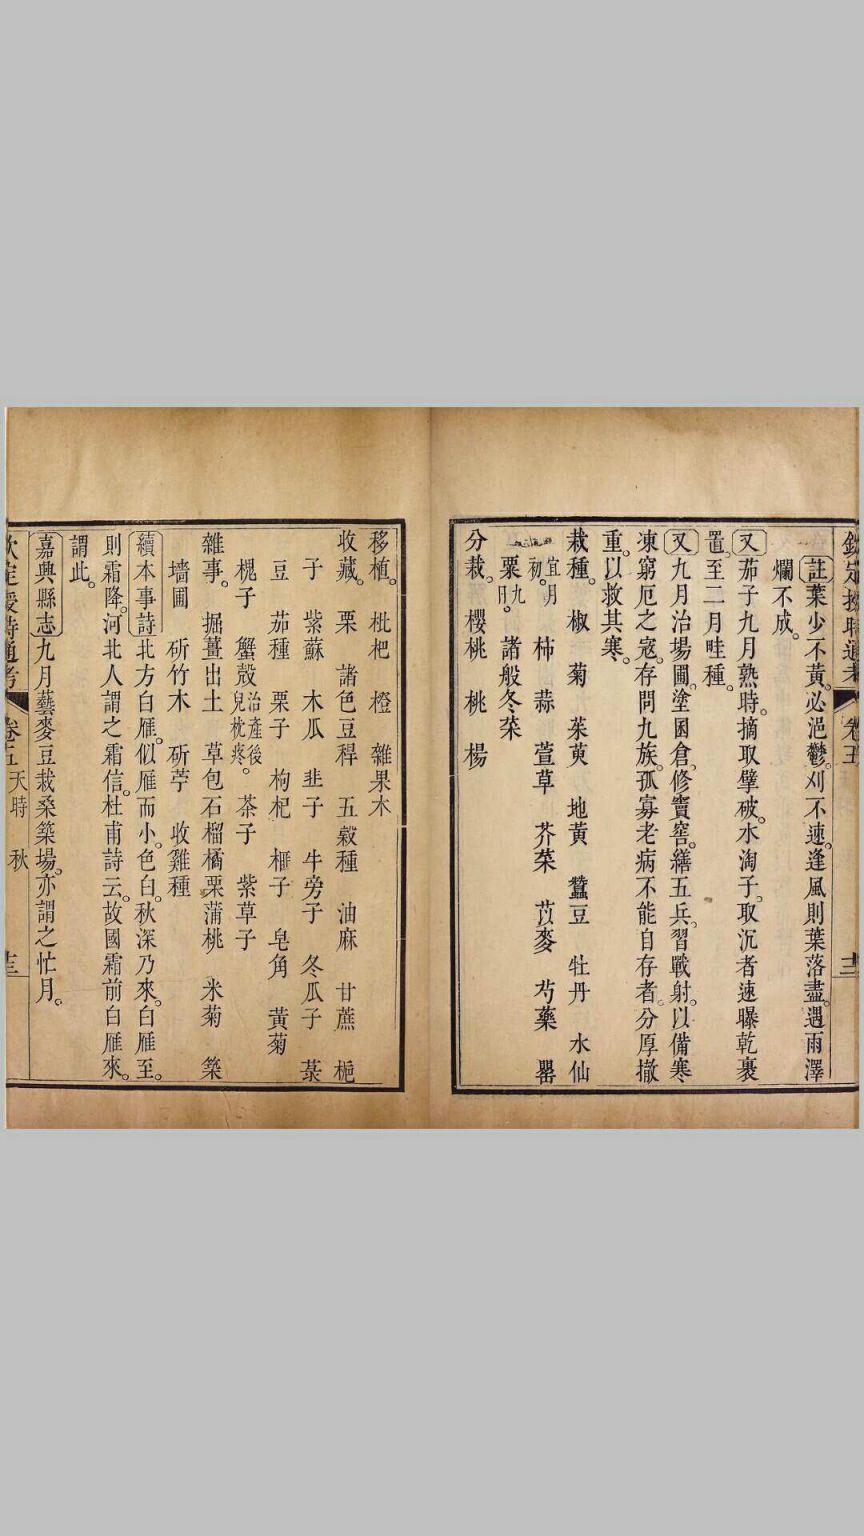 欽定授時通考 卷五
註葉少不黃。必浥鬱。刈不速。逢風則葉落盡。遇雨澤
爛不成。
又茄子九月熟時。摘取擘破。水淘子。取沉者速曝乾裹
置。至二月畦種。
又九月治場圃。塗囷倉。修竇窖。繕五兵。習戰射。以備寒
凍窮厄之寇。存問九族。孤寡老病不能自存者。分厚撤
重。以救其寒。
栽種。 椒 菊 茱萸 地黃 蠶豆 牡丹 水仙
宜月初。 柿 蒜 萱草 芥菜 苡麥 芍藥 罌
粟九日。 諸般冬菜
分栽。 櫻桃 桃 楊
移植。 枇杷 橙 雜果木
收藏。 栗 諸色豆稈 五穀種 油麻 甘蔗 梔
子 紫蘇 木瓜 韭子 牛旁子 冬瓜子 菉
豆 茄種 栗子 枸杞 榧子 皂角 黃菊
槐子 蟹殼治產後兒枕疼。 茶子 紫草子
雜事。 掘薑出土 草包石榴橘栗蒲桃 米菊 築
墻圃 斫竹木 斫苧 收雞種
續本事詩北方白雁。似雁而小。色白。秋深乃來。白雁至。
則霜降。河北人謂之霜信。杜甫詩云。故國霜前白雁來。
謂此。
嘉興縣志九月藝麥豆栽桑築場。亦謂之忙月。
欽定授時通考 卷五 天時 秋 十三